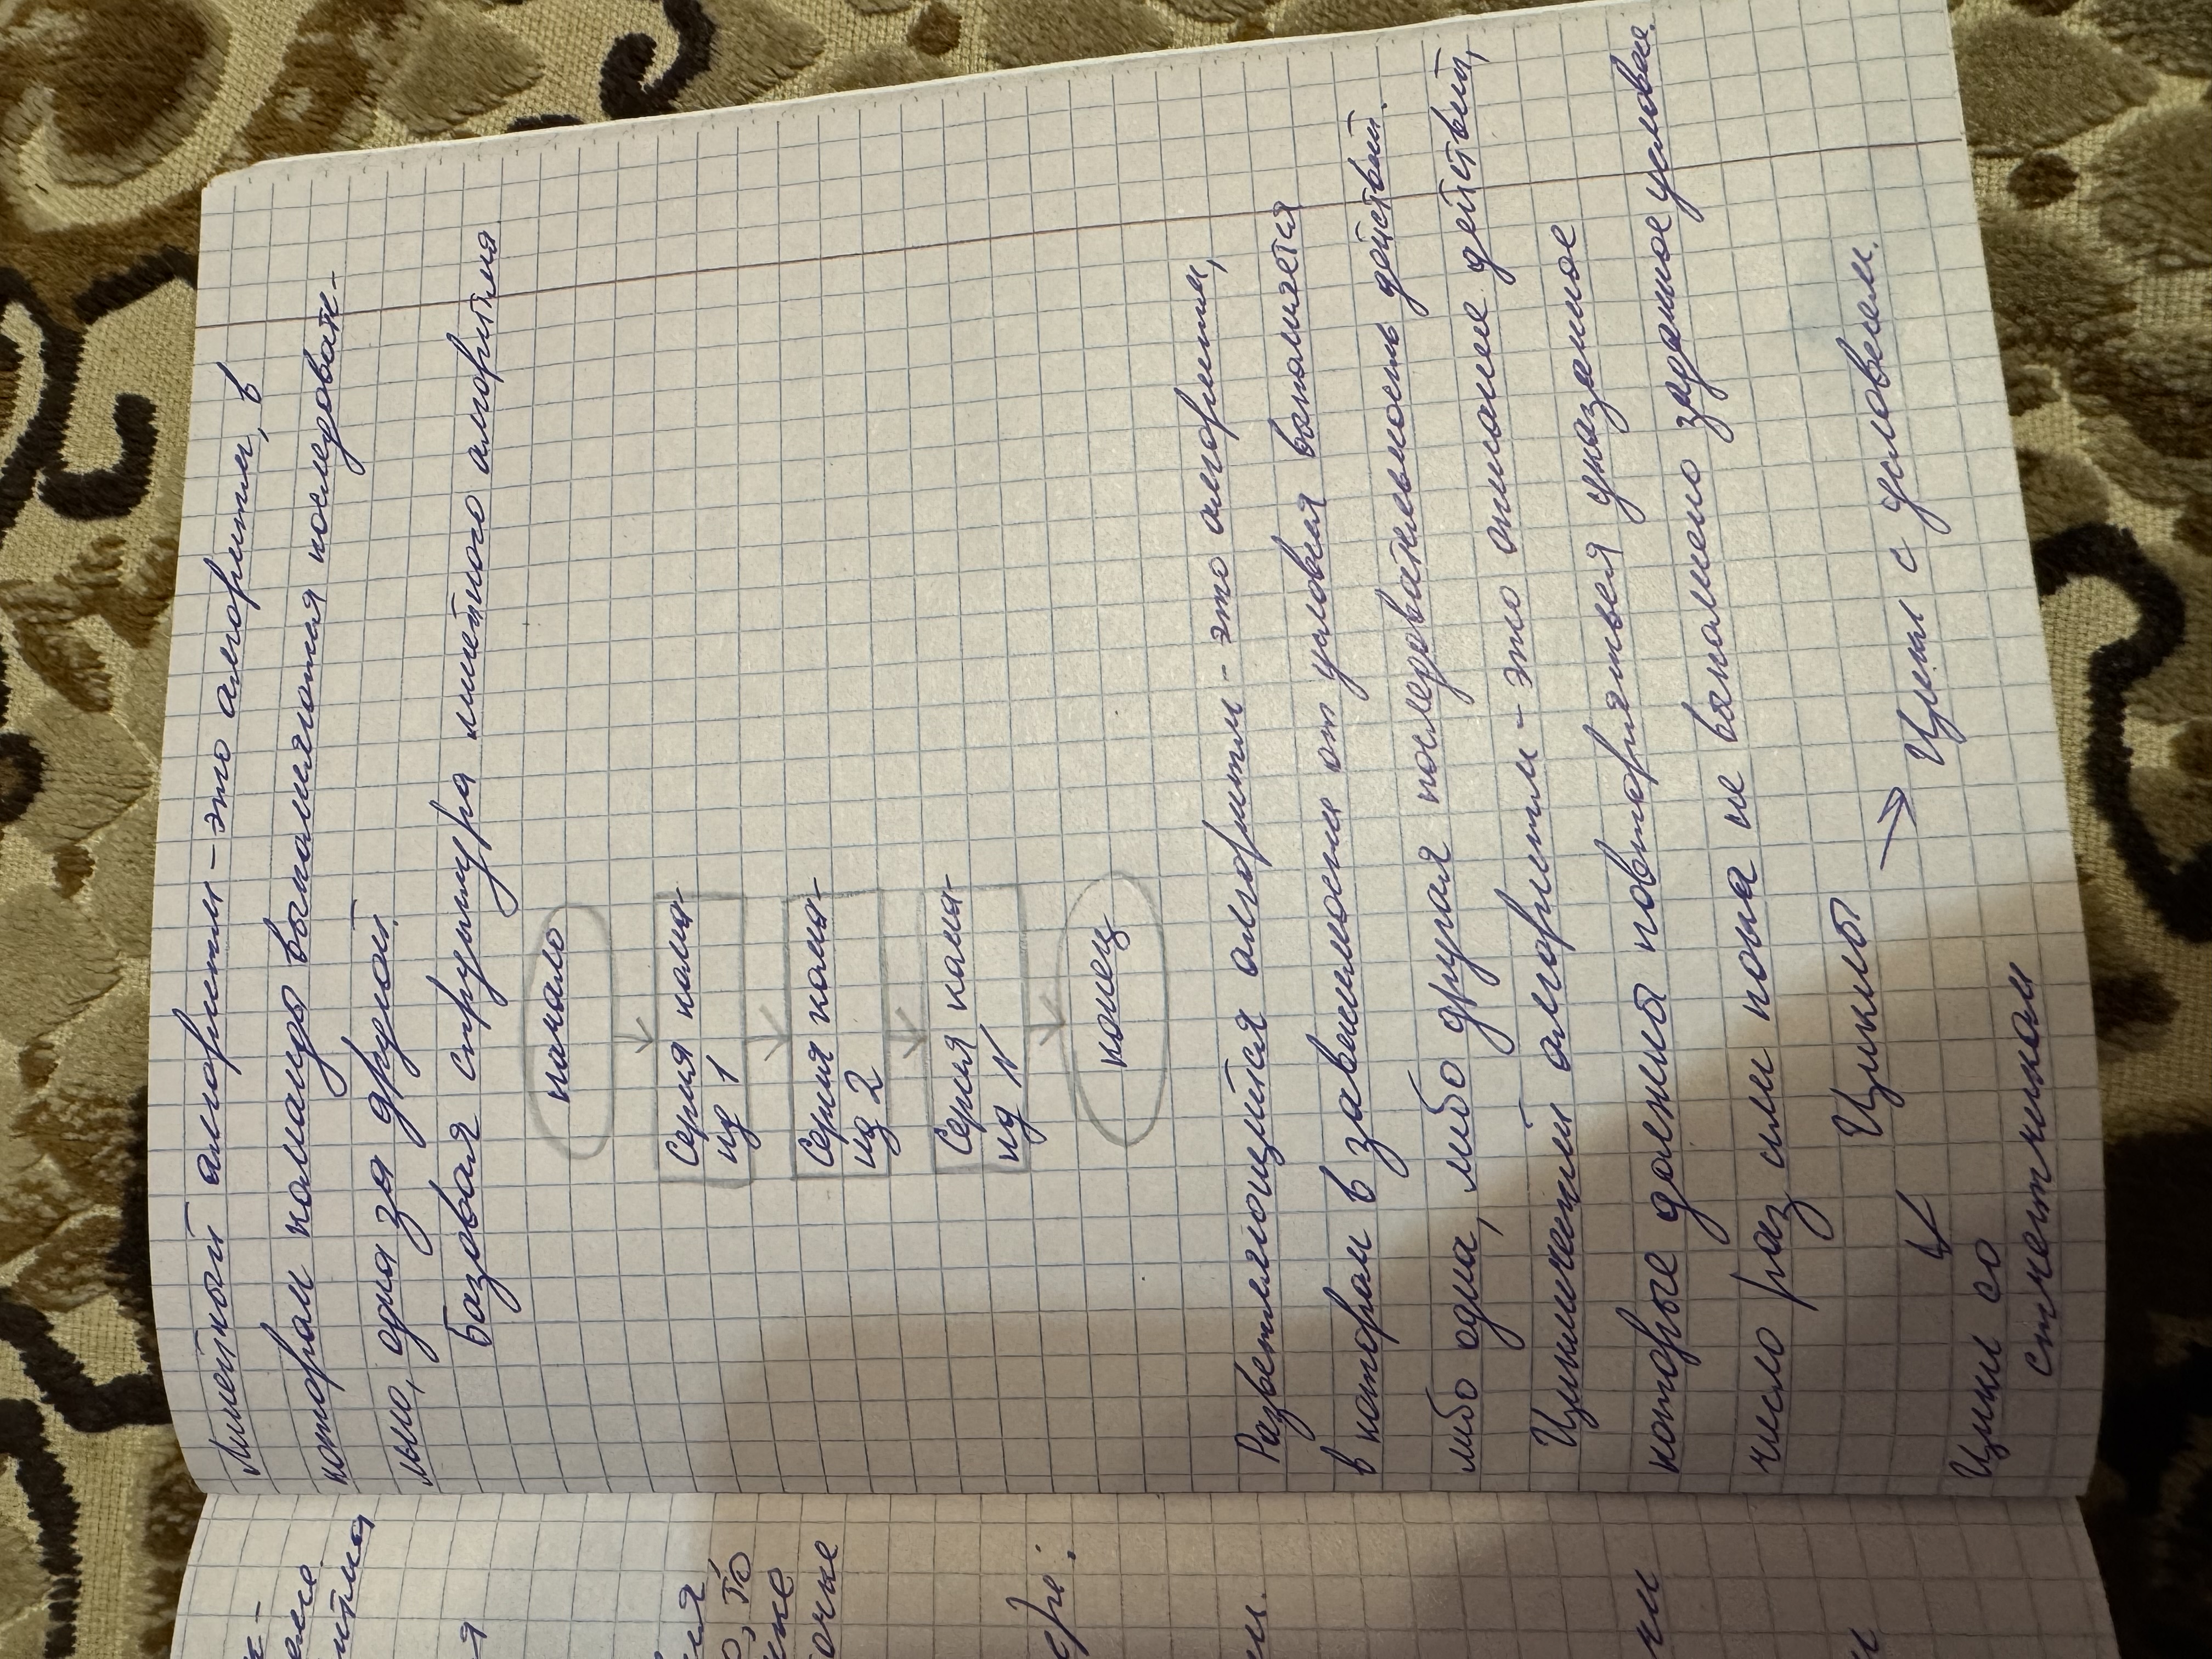 Линейный алгоритм - это алгоритм, в
котором команды выполняются последователь-
льно, одна за другой.
Базовая структура линейного алгоритма
начало
Серия кома-
нд 1
Серия кома-
нд 2
Серия кома-
нд N
конец
Разветвляющийся алгоритм - это алгоритм,
в котором в зависимости от условия выполняется
либо одна, либо другая последовательность действий.
Циклический алгоритм - это описание действий,
которые должны повторяться указанное
число раз или пока не выполнено заданное условие.
Циклы
Цикл со
счетчиком
Цикл с условием.